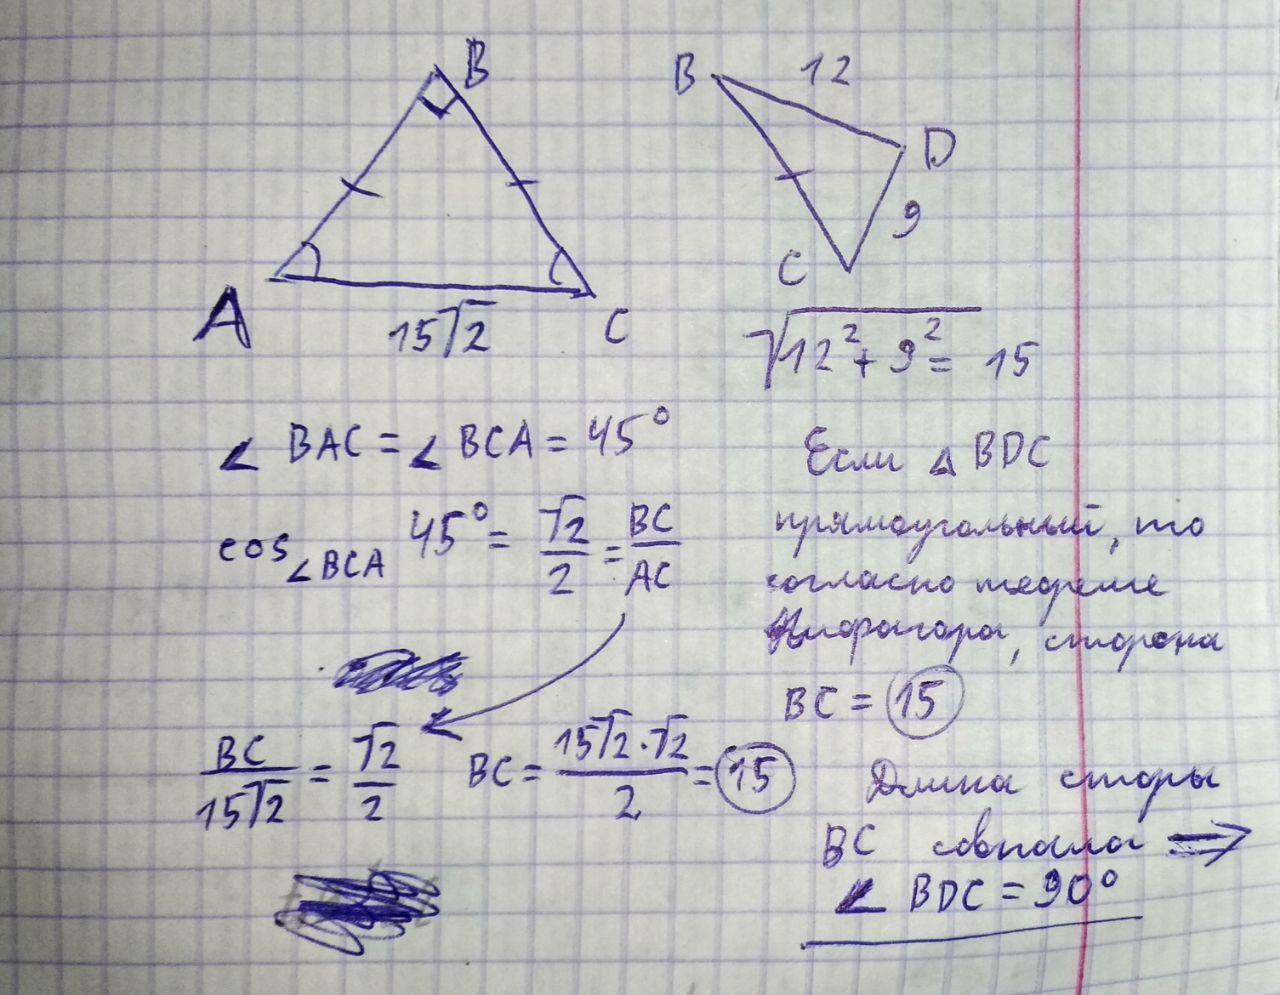 B
A
15√2
C
∠ BAC = ∠ BCA = 45°
cos∠BCA 45° = √2/2 = BC/AC
BC/15√2 = √2/2 BC = 15√2·√2/2 = 15
B 12
D
9
C
√12² + 9² = 15
Если △ BDC
прямоугольный, то
согласно теореме
Пифагора, сторона
BC = 15
Длина сторы
BC совпала ⇒
∠ BDC = 90°